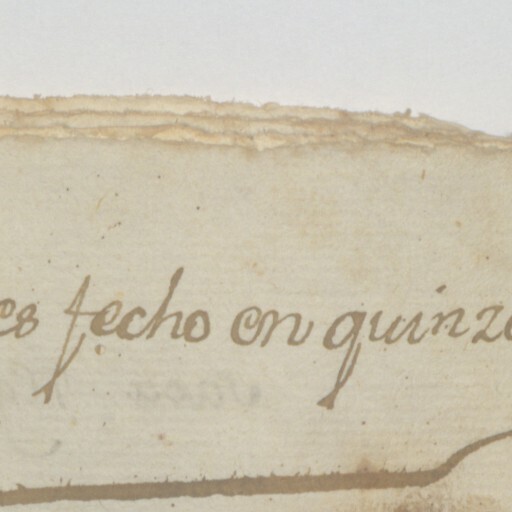 es fecho en quinze